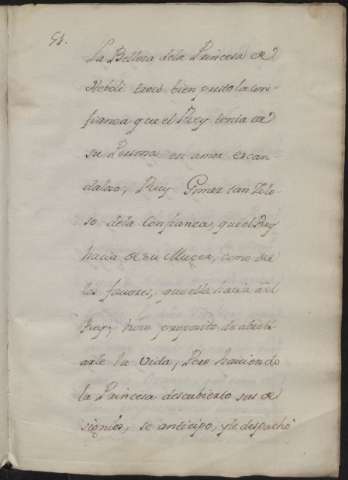 La Belleza dela Princesa de
Heboli trocó bien presto la con-
fianza que el Rey tenia de
su Persona en amor escan-
daloso; Ruy Gomez tan zelo-
so dela Confianza, que el Rey
hacia de su Muger, como de
los favores, que ella hacia al
Rey; hizo proposito de
la Vida; Pero haviendo
la Princesa descubierto sus de-
signios, se anticipo, y le despachó